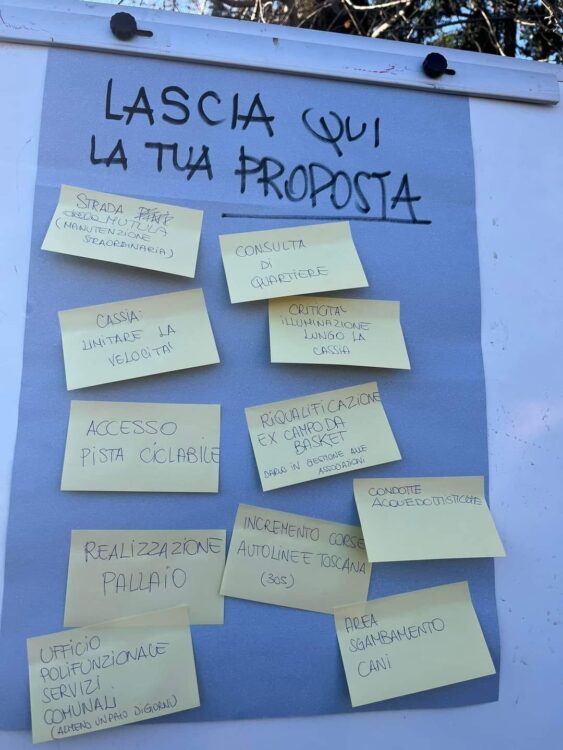 LASCIA QUI
LA TUA PROPOSTA
STRADA
MUTULA
(MANUTENZIONE
STRAORDINARIA)
CONSULTA
DI
QUARTIERE
CASSIA:
LIMITARE LA
VELOCITA'
CRITICITA'
ILLUMINAZIONE
LUNGO LA
CASSIA
ACCESSO
PISTA CICLABILE
RIQUALIFICAZIONE
EX CAMPO DA
BASKET
DARLO IN GESTIONE ALLE
ASSOCIAZIONI
CONDOTTE
ACQUEDOTTISTICHE
REALIZZAZIONE
PALLAIO
INCREMENTO CORSE
AUTOLINEE TOSCANA
(30S)
UFFICIO
POLIFUNZIONALE
SERVIZI
COMUNALI
(ALMENO UN PAIO DI GIORNI)
AREA
SGAMBAMENTO
CANI